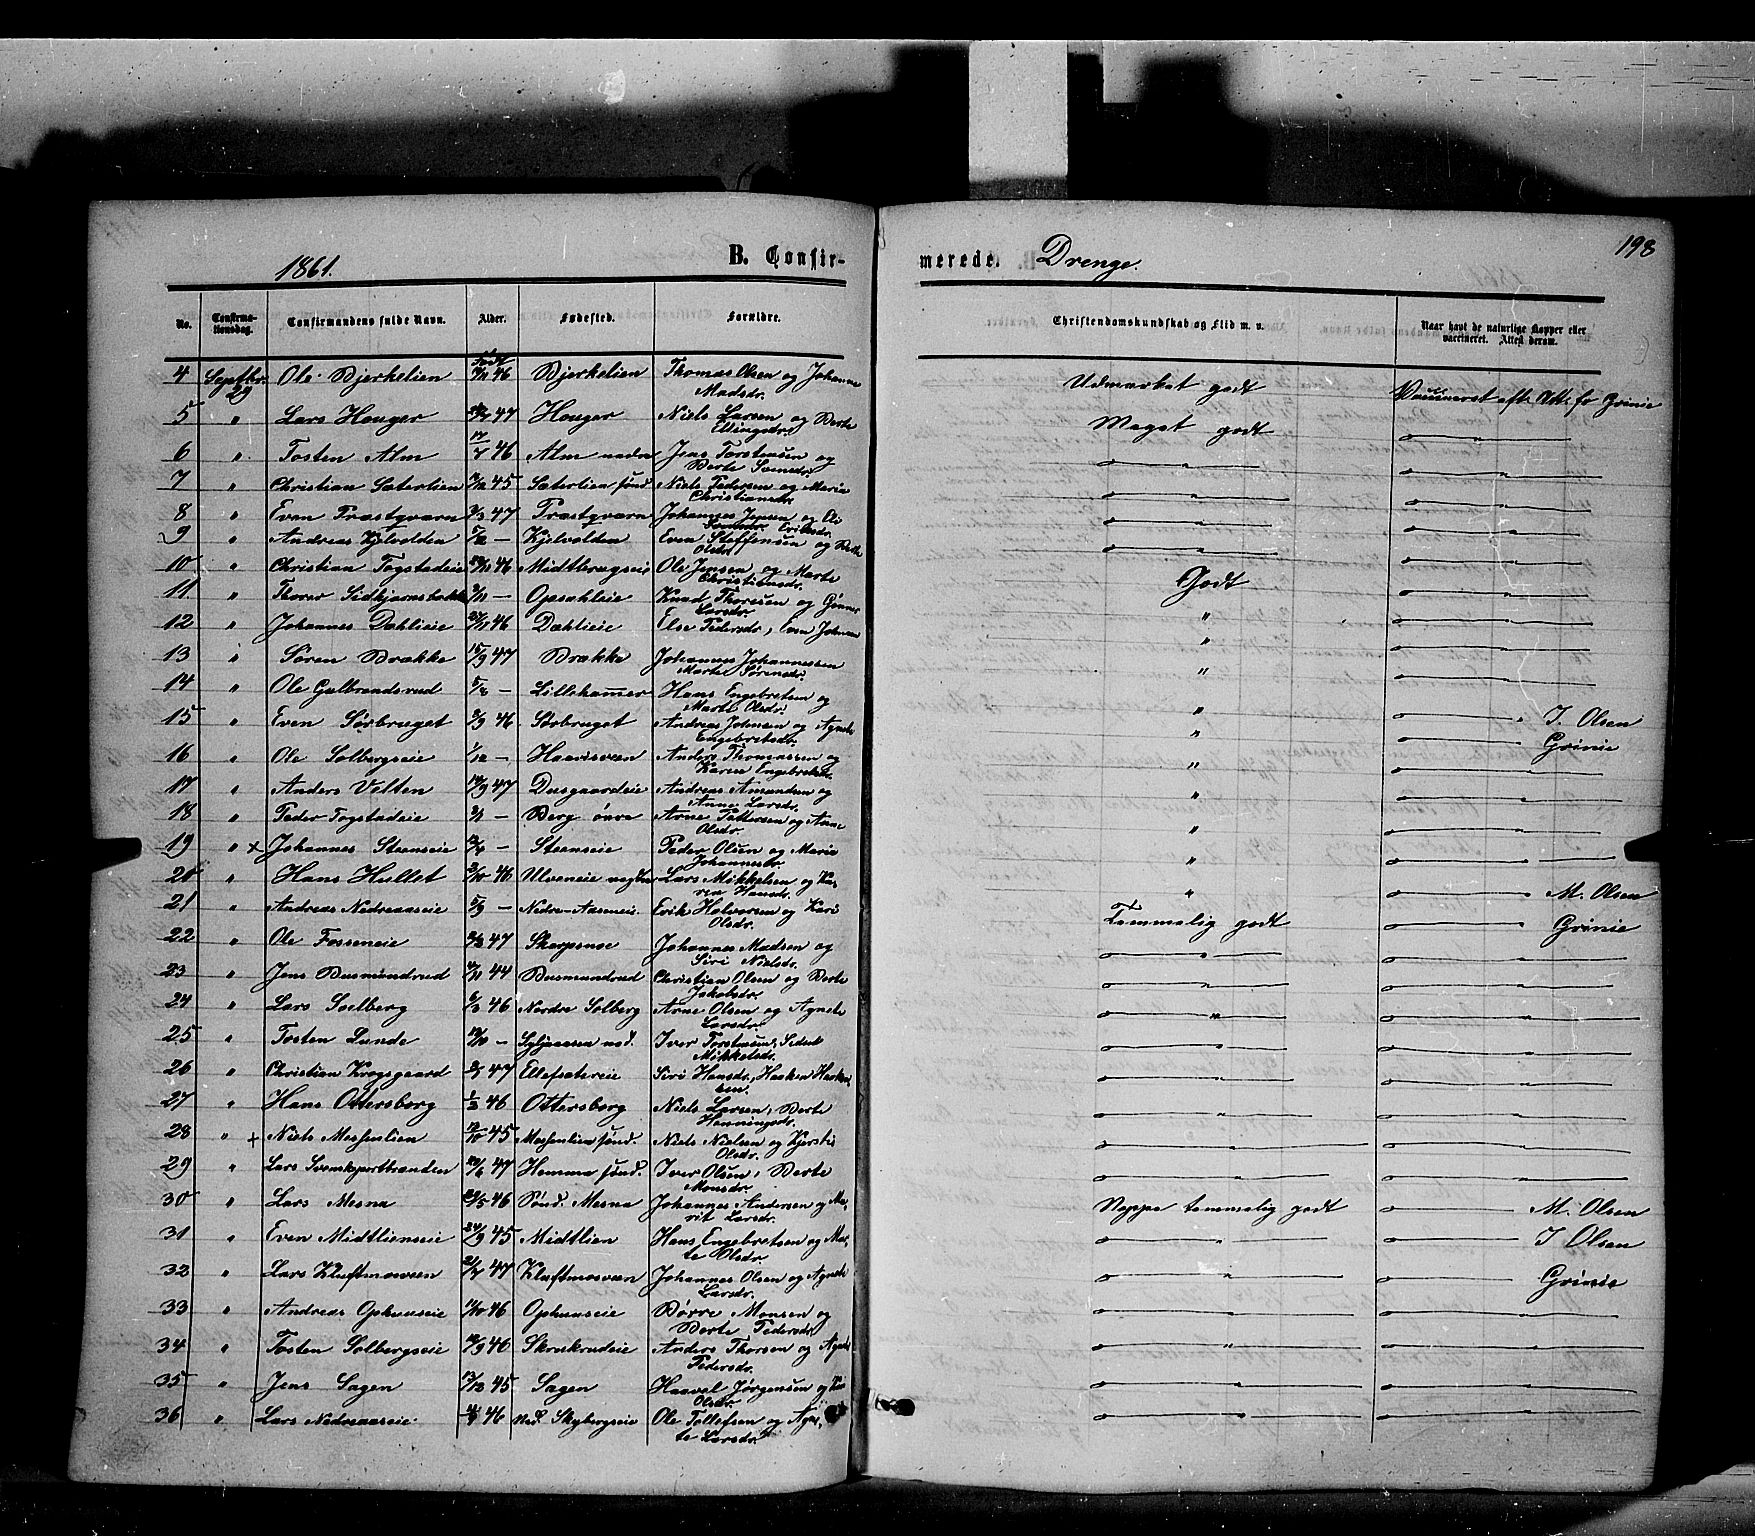 198
1861.
B. Confir-
merede Drenge.
No.
Confirma-
tionsdag.
Confirmandens fulde Navn.
Alder.
Fødested.
Forældre.
Christendomskundskab og Flid m. v.
Naar havt de naturlige Kopper eller
vaccineret. Attest derom.
4 Septbr. 29 Ole Bjerkelien Født 46 Bjerkelien Thomas Olsen og Johanne
Madsdr. Udmærket godt Vaccineret eft. Att. fr Grinie
5 " Lars Houger 47 Houger Niels Larsen og Berte
Ellingsdr. Meget godt
6 " Tosten Alm 17/4 46 Alm nedre Jens Torstensen og
Berte
7 " Christian Sæterlien 45 Sæterlien sønd. Niels Pedersen og Maria
Christiansdr.
8 " Even Præstqværn 47 Præstqværn Johannes Jensen og Oli
Evensdr.
9 " Andreas Kjelvolden — Kjelvolden Even Steffensen og Berte
Olsdr.
10 " Christian Togstadeie 46 Midtbrugseie Ole Jensen og Marte
Christiansdr. Godt
11 " Thorer — Opsahleie Knud Thoresen og
Larsdr. "
12 " Johannes Dæhlieie 46 Dæhlieie Else Pedersdr, Even Johnsen "
13 " Søren Brække 15/9 47 Brække Johannes Johannessen
Marte Sørensdr. "
14 " Ole Gulbrandsrud — Lillehammer Hans Engebretsen og
Marte Olsdr. "
15 " Even Sørbruget 46 Sørbruget Andreas Johnsen og Agnete
Engebretsdr. " I. Olsen
16 " Ole Solbergseie 1/12 — Haarisveen Anders Thomassen og
Karen Engebretsdr. " Grinie
17 " Anders Velten 47 Dusgaardeie Andreas Amundsen og
Anne Larsdr. "
18 " Peder Togstadeie — Berg øvre Arne Pettersen og Anne
Olsdr. "
19 " x Johannes Steenseie — Steenseie Peder Olsen og Maria
Johannesdr. "
20 " Hans Hullet 46 Ulveneie Lars Mikkelsen og Ka-
ren Hansdr. " M. Olsen
21 " Andreas Nedreaaseie 5/9 — Nedre-Aaseneie Erik Halvorsen og Kari
Olsdr. Temmelig godt Grinie
22 " Ole Fosseneie 47 Skarpsnoe Johannes Madsen og
Siri Nielsdr.
23 " Jens Busmundrud 44 Busmundrud Christian Olsen og Berte
Jakobsdr.
24 " Lars Soelberg 46 Nordre Solberg Arne Olsen og Agnete
Larsdr.
25 " Tosten Lunde — ned. Iver Torstensen,
Mikkelsdr.
26 " Christian Krogsgaard 47 Ellefsætereie Siri Hansdr., Haaken Haaken-
sen.
27 " Hans Ottersborg 46 Ottersborg Niels Larsen, Berte
Henningsdr.
28 " + Niels Messenlien 45 Messenlien sønd. Niels Nielsen og Kjersti
Olsdr.
29 " Lars 47 Hemma sønd. Iver Olsen, Berte
Monsdr.
30 " Lars Mesna 46 Sønd. Mesna Johannes Andersen og Ma-
rit Larsdr. Neppe temmelig godt M. Olsen
31 " Even Midtlienseie 24/9 45 Midtlien Hans Engebretsen og Mar-
te Olsdr. I Olsen
32 " Lars Kluftmosveen 47 Kluftmosveen Johannes Olsen og Agnete
Larsdr. Grinie
33 " Andreas Ophuuseie 46 Ophuuseie Børre Monsen og
Berte Pedersdr.
34 " Tosten Solbergseie 46 Skrukrudeie Anders Thorsen og Agnete
Pedersdr.
35 " Jens Sagen 13/12 45 Sagen Haavel Jørgensen og
Olsdr.
36 " Lars Nedreaaseie 46 Ned. Skybergseie Ole Tollefsen og Agne-
te Larsdr.